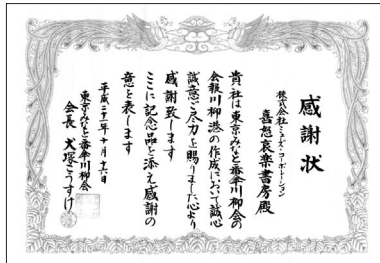 感謝状
株式会社ミューズ・コーポレーション
喜怒哀楽書房殿
貴社は東京みなと番傘川柳会の
会報川柳港の作成において誠心
誠意ご尽力を賜りました心より
感謝致します
ここに記念品を添え感謝の
意を表します
平成二十一年十月十六日
東京みなと番傘川柳会
会長 犬塚こうすけ